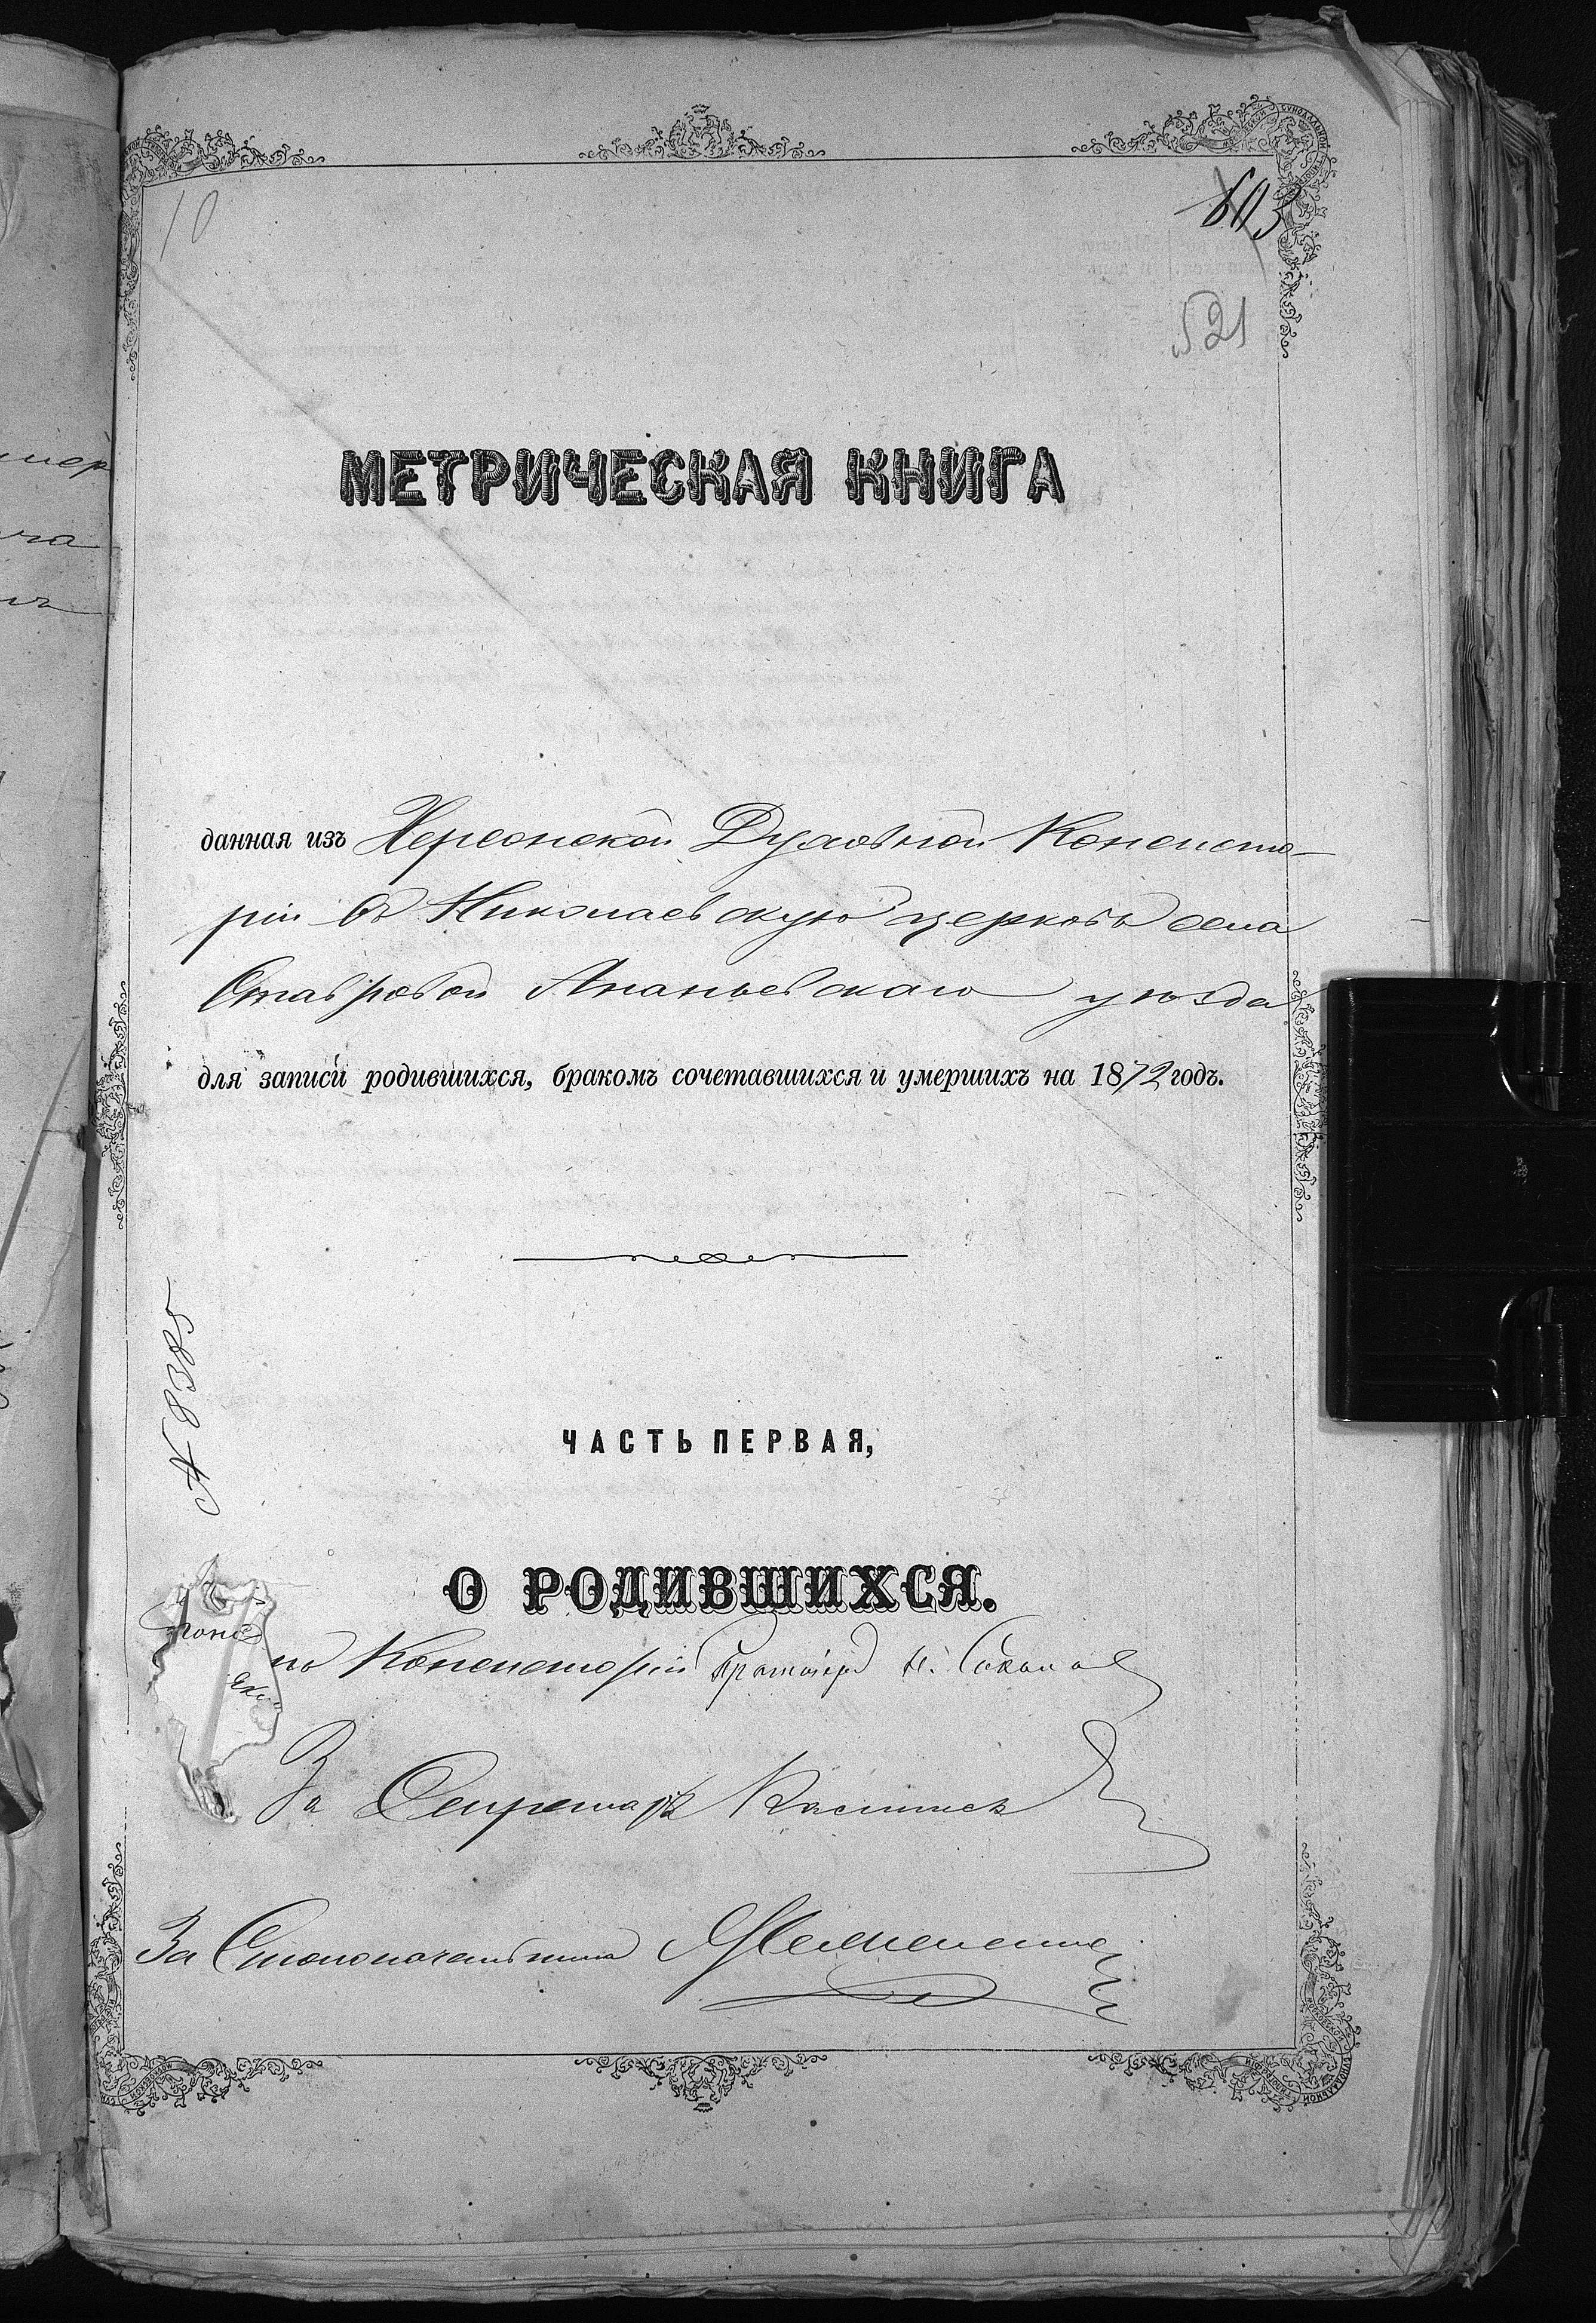 10
603
521
МЕТРИЧЕСКАЯ КНИГА
данная изъ Херсонской Духовной Консисто-
ріи въ Николаевскую церковь села
Ставровой Ананьевскаго уѣзда
для записи родившихся, бракомъ сочетавшихся и умершихъ на 1872 годъ.
№ 8385
ЧАСТЬ ПЕРВАЯ,
О РОДИВШИХСЯ.
по Консисторіи Протоіерей Н. Соколов
За Секретаря
За Столоначальника